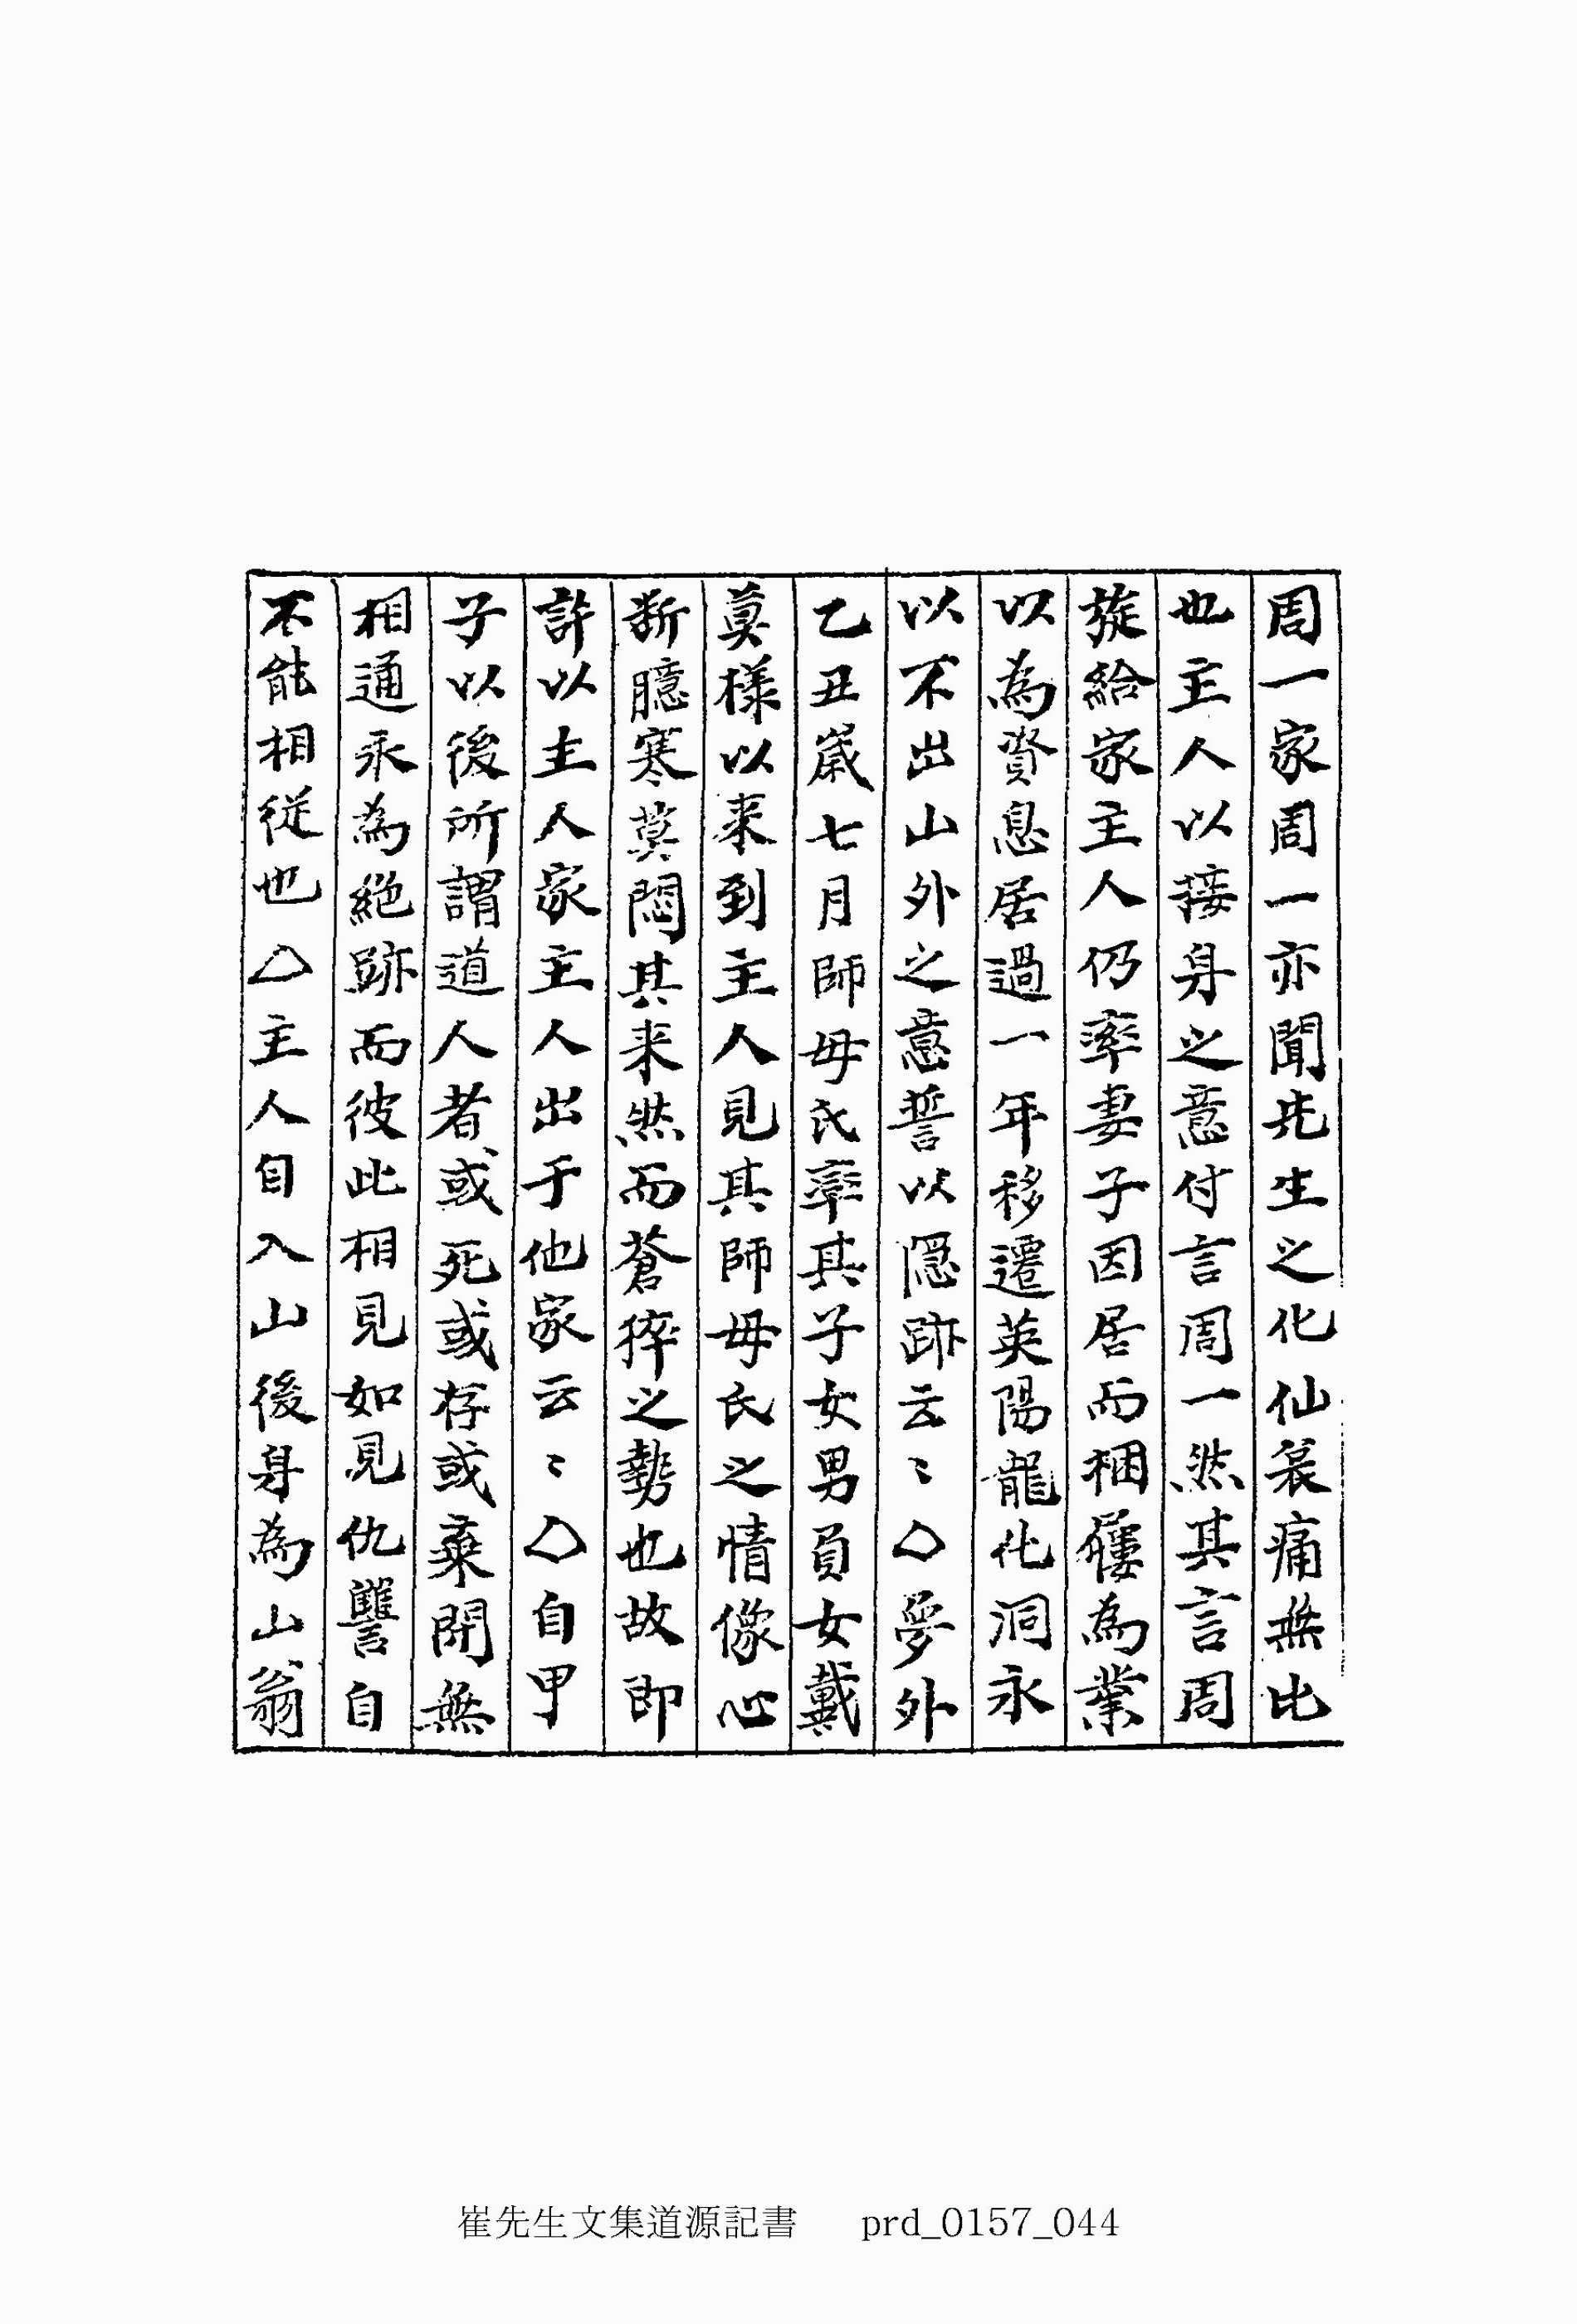 周一家周一亦聞先生之化仙哀痛無比
也主人以接身之意付言周一然其言周
旋給家主人仍率妻子因居而捆屨為業
以為資息居過一年移遷英陽龍化洞永
以不出山外之意誓以隠跡云〻△夢外
乙丑歲七月師母氏率其子女男負女戴
莫樣以来到主人見其師母氏之情像心
斯臆寒莫悶其来然而蒼猝之勢也故即
許以主人家主人出于他家云〻△自甲
子以後所謂道人者或死或存或棄閒無
相通永為絕跡而彼此相見如見仇讐自
不能相從也△主人自入山後身為山翁
崔先生文集道源記書 prd_0157_044